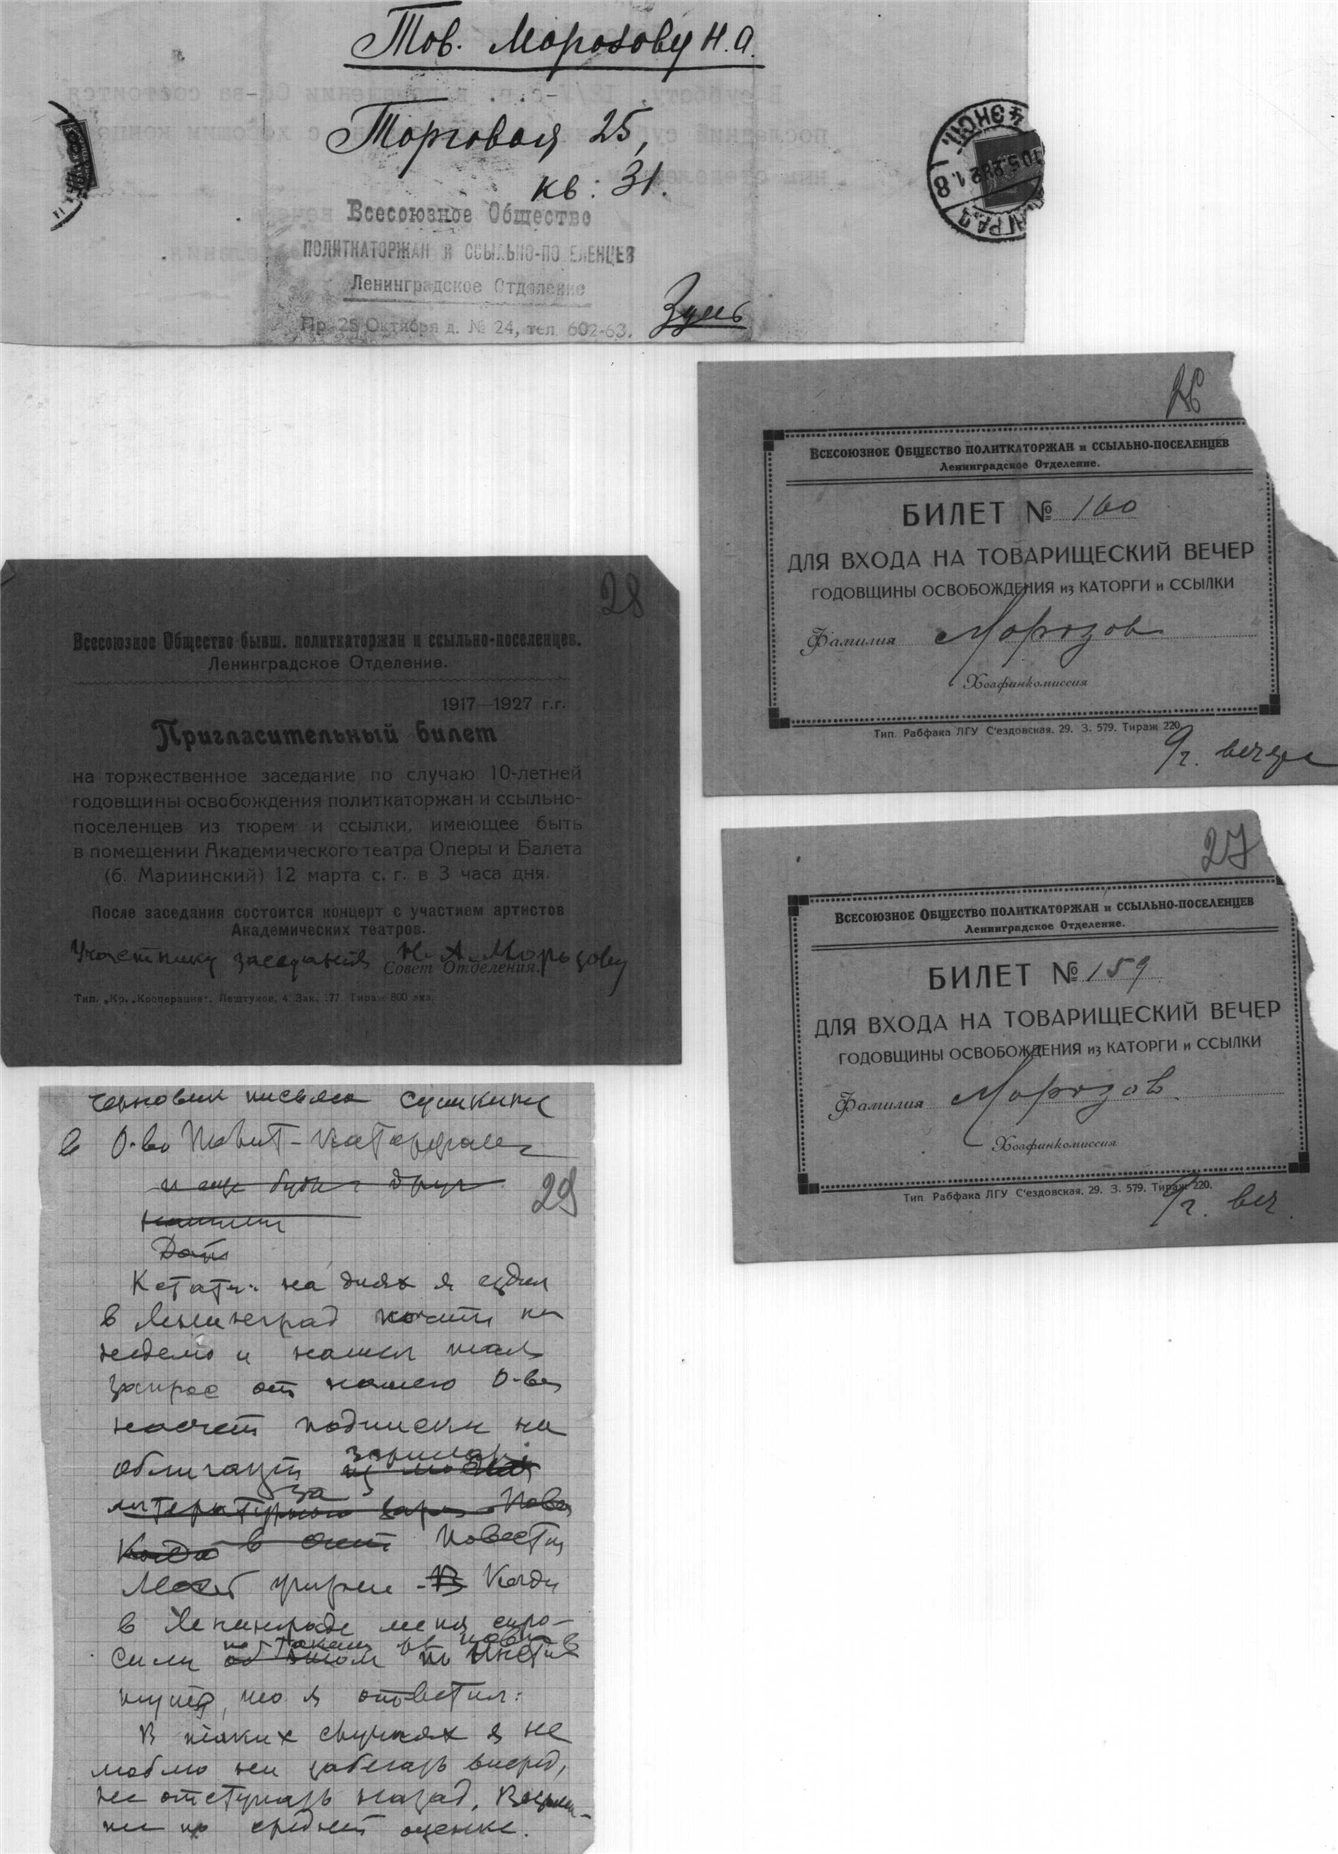 Тов. Морозову Н.А.
Торговая 25,
кв: 31.
Всесоюзное Общество
ПОЛИТКАТОРЖАН И ССЫЛЬНО-ПО ЕЛЕНЦЕВ
Ленинградское Отделение
Пр. 25 Октября д. № 24, тел. 602-63.
Здесь
26
Всесоюзное Общество политкаторжан и ссыльно-поселенцев
Ленинградское Отделение.
БИЛЕТ № 160
ДЛЯ ВХОДА НА ТОВАРИЩЕСКИЙ ВЕЧЕР
ГОДОВЩИНЫ ОСВОБОЖДЕНИЯ из КАТОРГИ и ССЫЛКИ
Фамилия Морозов
Хозфинкомиссия
Тип. Рабфака ЛГУ С'ездовская, 29. З. 579. Тираж 220.
28
Всесоюзное Общество бывш. политкаторжан и ссыльно-поселенцев.
Ленинградское Отделение.
1917—1927 г.г.
Пригласительный билет
на торжественное заседание по случаю 10-летней
годовщины освобождения политкаторжан и ссыльно-
поселенцев из тюрем и ссылки, имеющее быть
в помещении Академического театра Оперы и Балета
(б. Мариинский) 12 марта с. г. в 3 часа дня.
После заседания состоится концерт с участием артистов
Академических театров.
Участнику заседания Н. А. Морозову
Совет Отделения.
Тип. „Кр. Кооперация". Лештуков, 4. Зак. 177. Тираж 800 экз.
27
Всесоюзное Общество политкаторжан и ссыльно-поселенцев
Ленинградское Отделение.
БИЛЕТ № 159
ДЛЯ ВХОДА НА ТОВАРИЩЕСКИЙ ВЕЧЕР
ГОДОВЩИНЫ ОСВОБОЖДЕНИЯ из КАТОРГИ и ССЫЛКИ
Фамилия Морозов
Хозфинкомиссия
Тип. Рабфака ЛГУ С'ездовская, 29. З. 579. Тираж 220.
черновик письма
в О-во Полит-каторжан
29
Кстати: на днях я ездил
в Ленинград почти на
неделю и нашел там
запрос от нашего О-ва
насчет подписки на
облигации
Когда
в Ленинграде меня спро-
сили
то я ответил:
В таких случаях я не
люблю ни забегать вперед,
ни отступать назад.
по средней оценке.